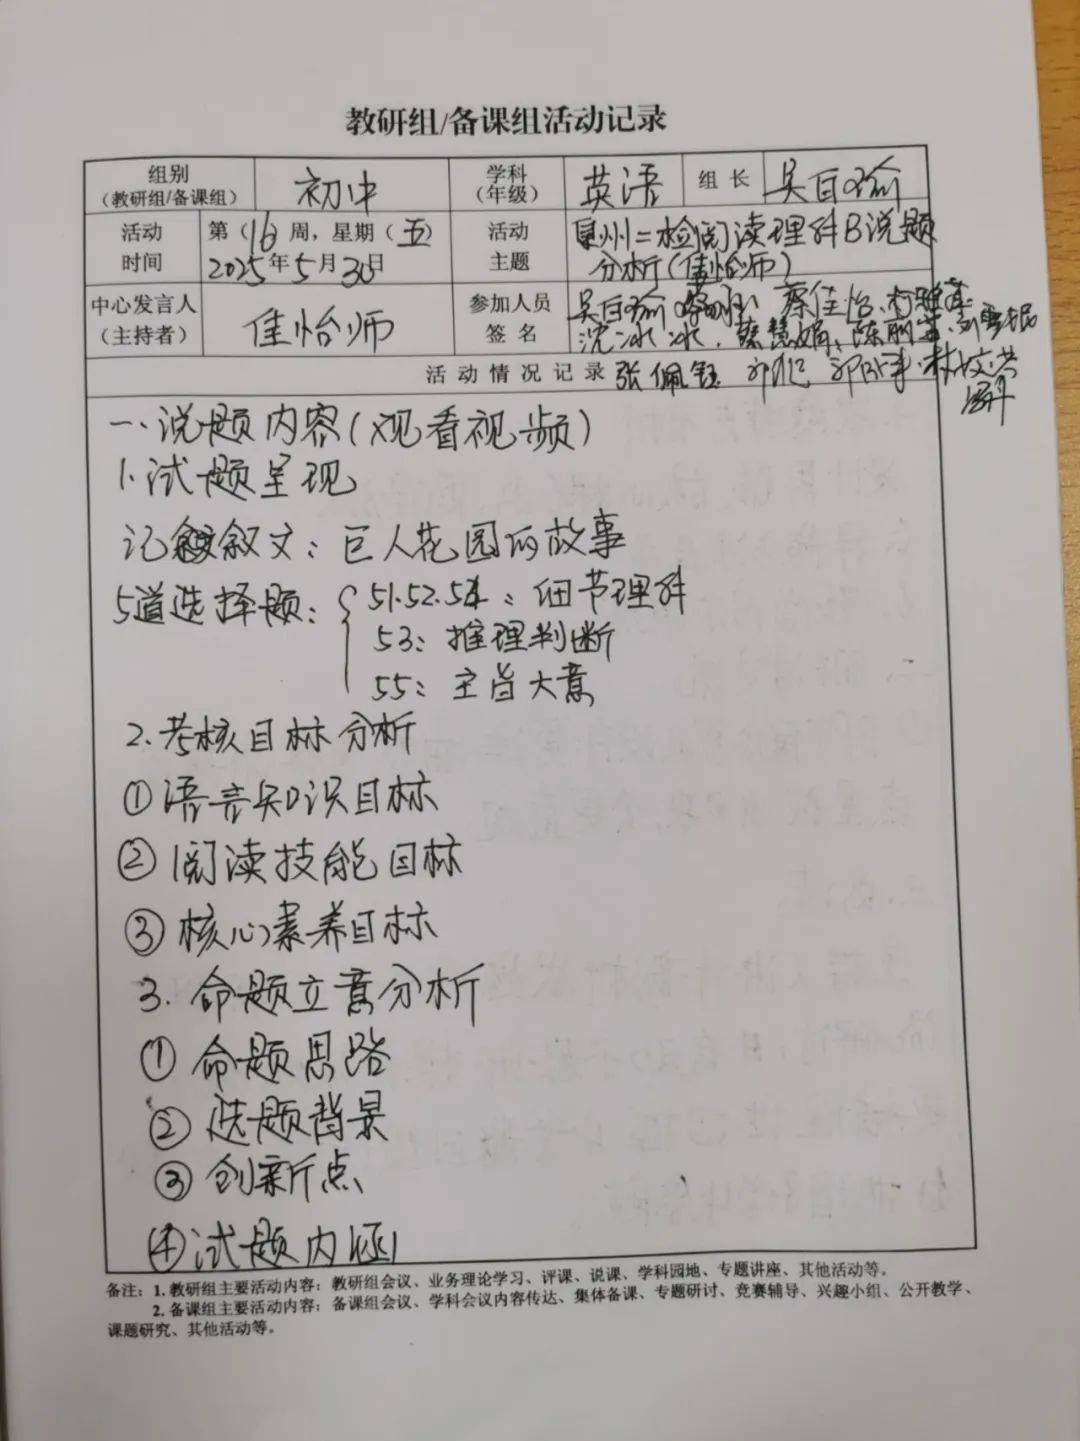 教研组/备课组活动记录
组别
(教研组/备课组) 初中 学科
(年级) 英语 组长 吴百瑜
活动
时间 第(16周,星期(五)
2025年5月30日
活动
主题 泉州二检阅读理解B说题
分析(佳怡师)
中心发言人
(主持者) 佳怡师
参加人员
签名 吴百瑜 蔡佳怡
沈冰冰、蔡慧娟、陈丽
活动情况记录 张佩钰
一、说题内容(观看视频)
1.试题呈现
记叙文:巨人花园的故事
5道选择题: 51.52.54:细节理解
53:推理判断
55:主旨大意
2.考核目标分析
①语言知识目标
②阅读技能目标
③核心素养目标
3.命题立意分析
①命题思路
②选题背景
③创新点
④试题内涵
备注:1.教研组主要活动内容:教研组会议、业务理论学习、评课、说课、学科园地、专题讲座、其他活动等。
2.备课组主要活动内容:备课组会议、学科会议内容传达、集体备课、专题研讨、竞赛辅导、兴趣小组、公开教学、
课题研究、其他活动等。